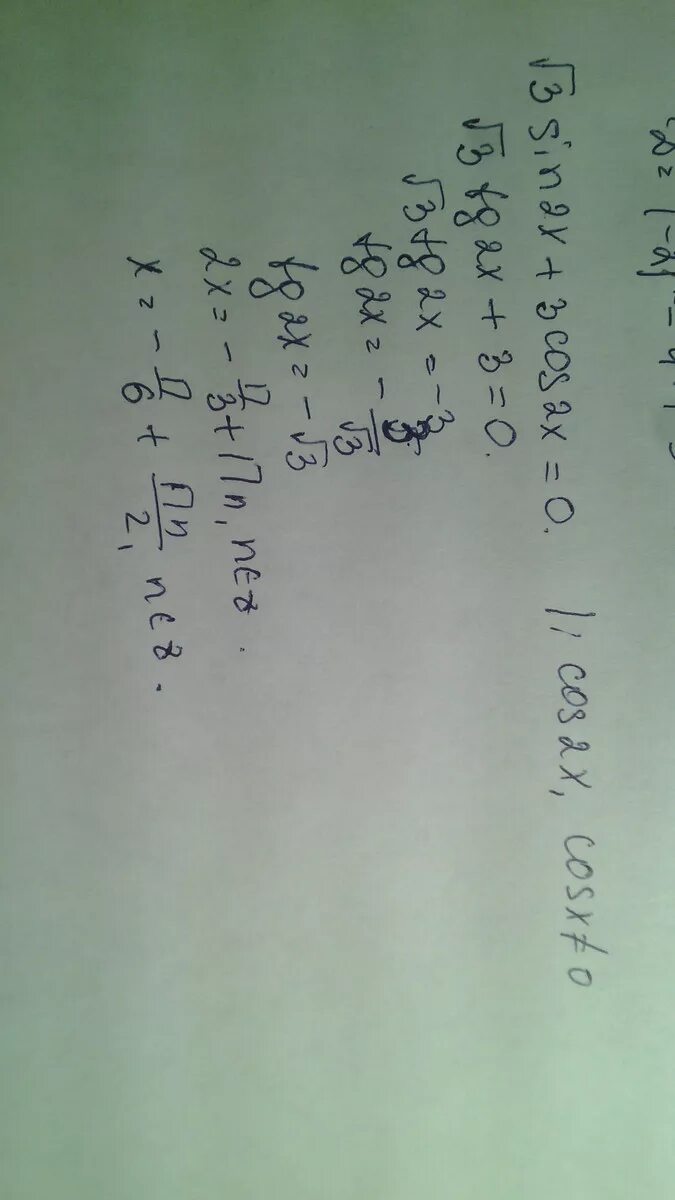 2 = (-2)
√3 sin2x + 3cos2x = 0. |: cos2x, cosx≠0
√3 tg2x + 3 = 0.
√3 tg2x = -3
tg2x = -3/√3
tg2x = -√3
2x = -π/3 + πn, n∈z.
x = -π/6 + πn/2, n∈z.